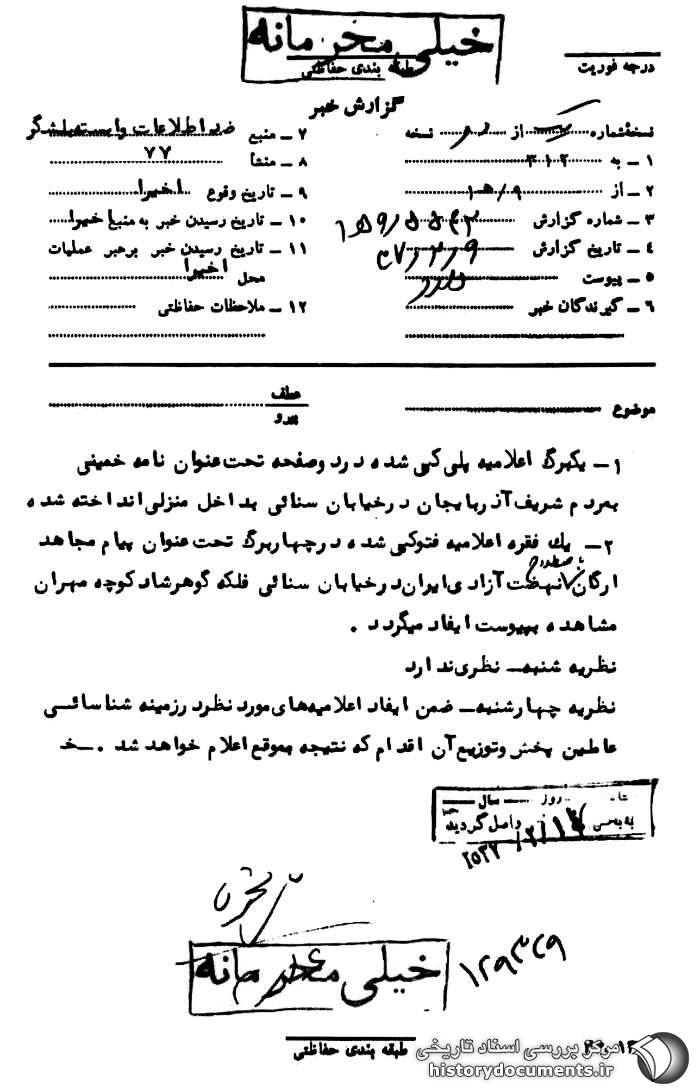 خیلی محرمانه
طبقه بندی حفاظتی
درجه فوریت
گزارش خبر
نسخه شماره از نسخه
۱ – به ۳۱۲
۲ – از ۹/ه۱
۳ – شماره گزارش
۴ – تاریخ گزارش
۵ – پیوست دارد
۶ – گیرندگان خبر
۷ – منبع ضد اطلاعات وابسته بلشگر
۷۷
۸ – منشأ
۹ – تاریخ وقوع اخیرا
۱۰ – تاریخ رسیدن خبر به منبع اخیرا
۱۱ – تاریخ رسیدن خبر برهبر عملیات
محل اخیرا
۱۲ – ملاحظات حفاظتی
موضوع
عطف
پیرو
۱– یکبرگ اعلامیه پلی کپی شده درد وصفحه تحت عنوان نامه خمینی
بمردم شریف آذربایجان درخیابان سنائی بداخل منزلی انداخته شده
۲– یک فقره اعلامیه فتوکپی شده درچهاربرگ تحت عنوان پیام مجاهد
ارگان باصطلاح نهضت آزادی ایران درخیابان سنائی فلکه گوهرشاد کوچه مهران
مشاهده بپیوست ایفاد میگردد .
نظریه شنبه– نظری ندارد
نظریه چهارشنبه– ضمن ایفاد اعلامیه های مورد نظر درزمینه شناسائی
عاملین پخش وتوزیع آن اقدام که نتیجه بموقع اعلام خواهد شد . –خ
روز سال
به بخش واصل گردید
خیلی محرمانه
۱۲۹۳۲۹
طبقه بندی حفاظتی
مرکز بررسی اسناد تاریخی
historydocuments.ir